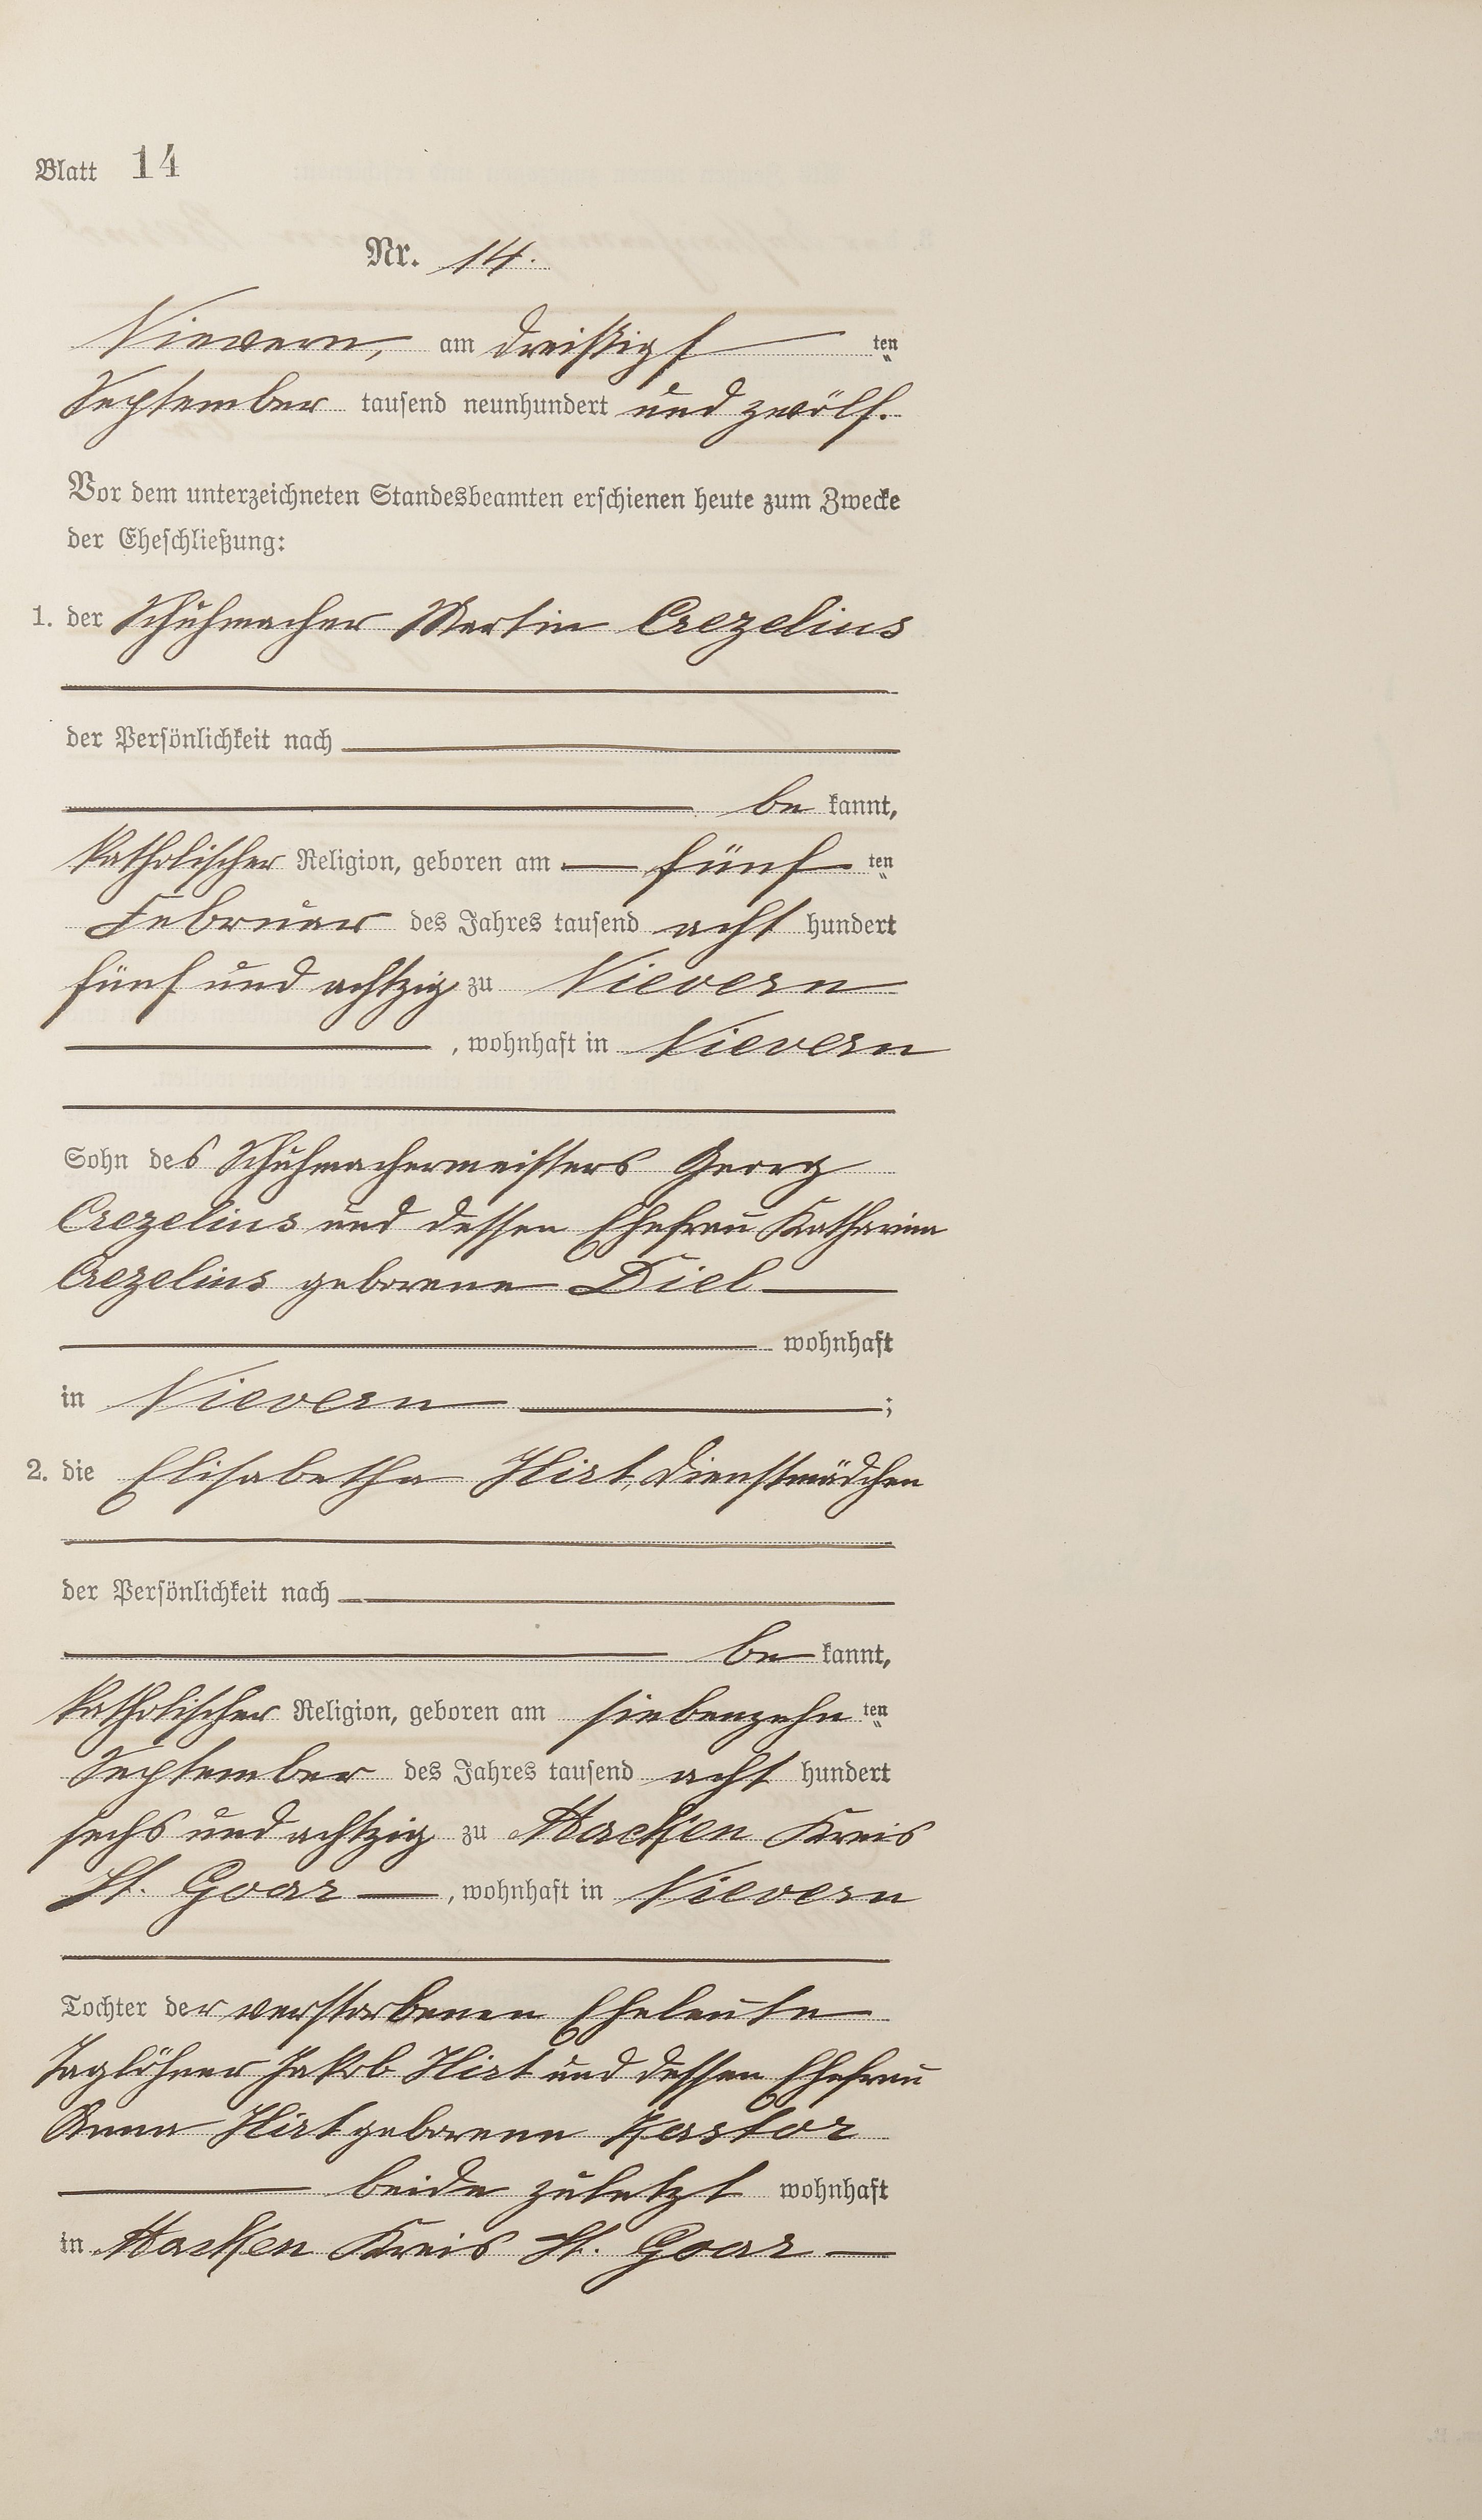 Blatt 14
Nr. 14.
Nievern, am dreißigs ten
September tausend neunhundert und zwölf.
Vor dem unterzeichneten Standesbeamten erschienen heute zum Zwecke
der Eheschließung:
1. der Schuhmacher Martin Crezelius
der Persönlichkeit nach
be kannt,
katholischer Religion, geboren am fünf ten
Februar des Jahres tausend acht hundert
fünf und achtzig zu Nievern
, wohnhaft in Nievern
Sohn des Schuhmachermeisters Georg
Crezelius und dessen Ehefrau Katharina
Crezelius geborene Diel
wohnhaft
in Nievern ;
2. die Elisabetha Hirt, Dienstmädchen
der Persönlichkeit nach
be kannt,
katholischer Religion, geboren am siebenzehn ten
September des Jahres tausend acht hundert
sechs und achtzig zu Macken Kreis
St. Goar , wohnhaft in Nievern
Tochter der verstorbenen Eheleute
Taglöhner Jakob Hirt und dessen Ehefrau
Anna Hirt geborene Kastor
beide zuletzt wohnhaft
in Macken Kreis St. Goar